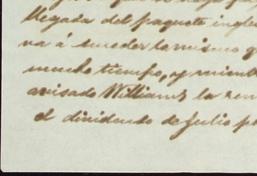 llegada del paquete ingles
va á suceder lo mismo q
mucho tiempo, y mient
avisado Williams la rem
el dividendo de Julio p